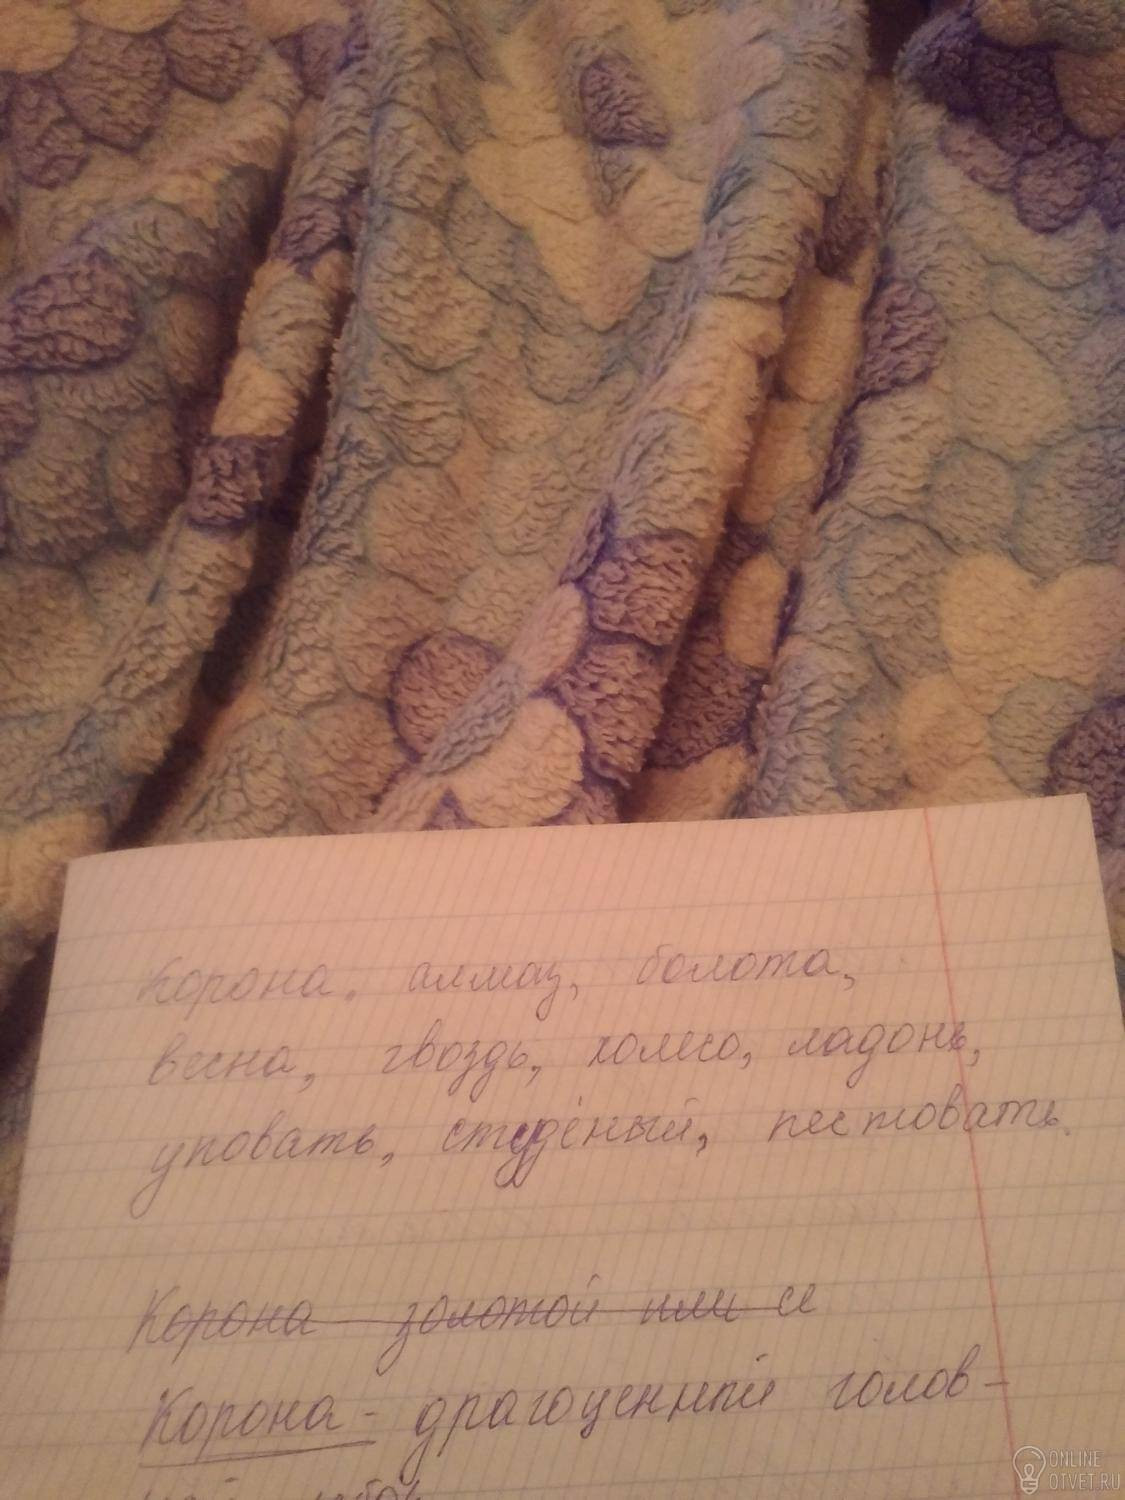 Корона, алмаз, болота,
весна, гвоздь, колесо, ладонь,
уповать, студёный, пестовать.
Корона золотой или се
Корона - драгоценный голов-
ной убор
ONLINE
OTVET.RU